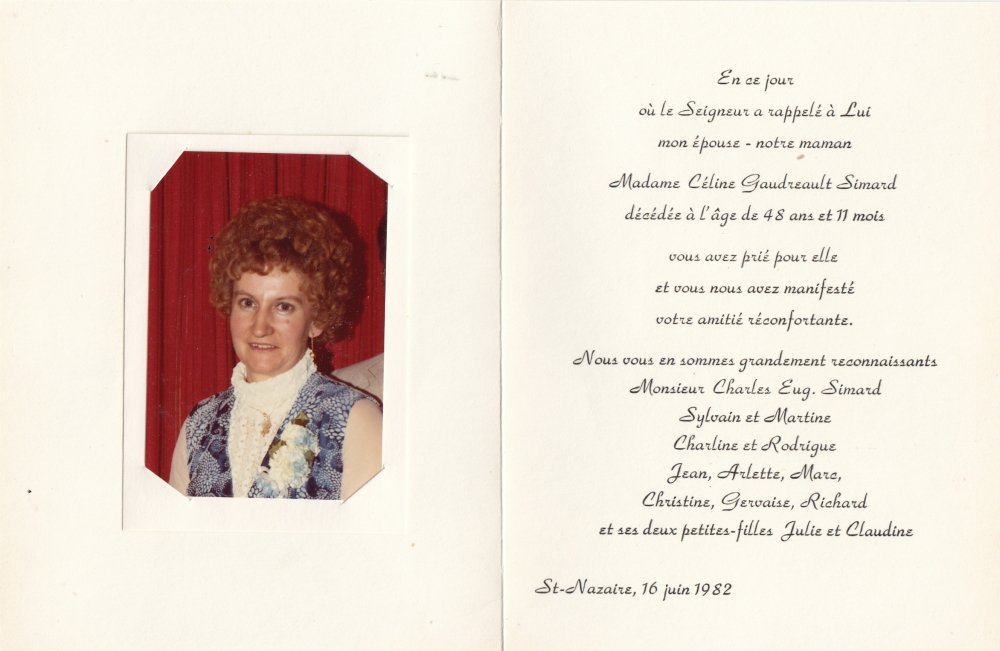 En ce jour
où le Seigneur a rappelé à Lui
mon épouse - notre maman
Madame Céline Gaudreault Simard
décédée à l'âge de 48 ans et 11 mois
vous avez prié pour elle
et vous nous avez manifesté
votre amitié réconfortante.
Nous vous en sommes grandement reconnaissants
Monsieur Charles Eug. Simard
Sylvain et Martine
Charline et Rodrigue
Jean, Arlette, Marc,
Christine, Gervaise, Richard
et ses deux petites-filles Julie et Claudine
St-Nazaire, 16 juin 1982